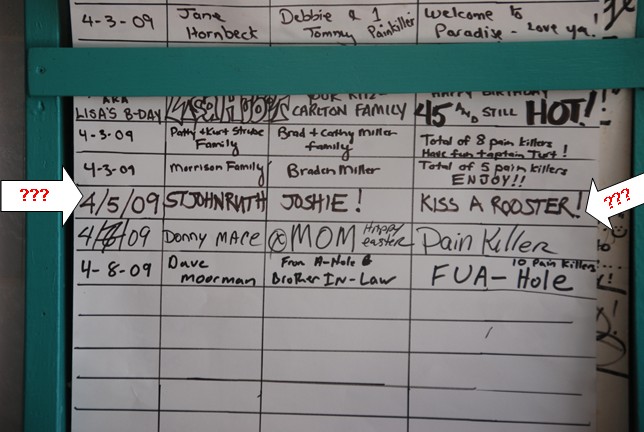 4-3-09 Jane Hornbeck Debbie & 1 Tommy Painkiller Welcome to Paradise - Love ya!
AKA LISA'S B-DAY CARLTON FAMILY HAPPY BIRTHDAY 45 AND STILL HOT!!
4-3-09 Patty + Kurt Strube Family Brad + Cathy Miller family Total of 8 pain killers Have fun + Captain Turt!
4-3-09 Morrison Family Braden Miller Total of 5 pain killers ENJOY!!
??? 4/5/09 STJOHNRUTH JOSHIE! KISS A ROOSTER! ???
09 Donny Mare MOM Happy easter Pain Killer
4-8-09 Dave Moorman From A-Hole & Brother In-Law 10 Pain Killers! FUA-Hole